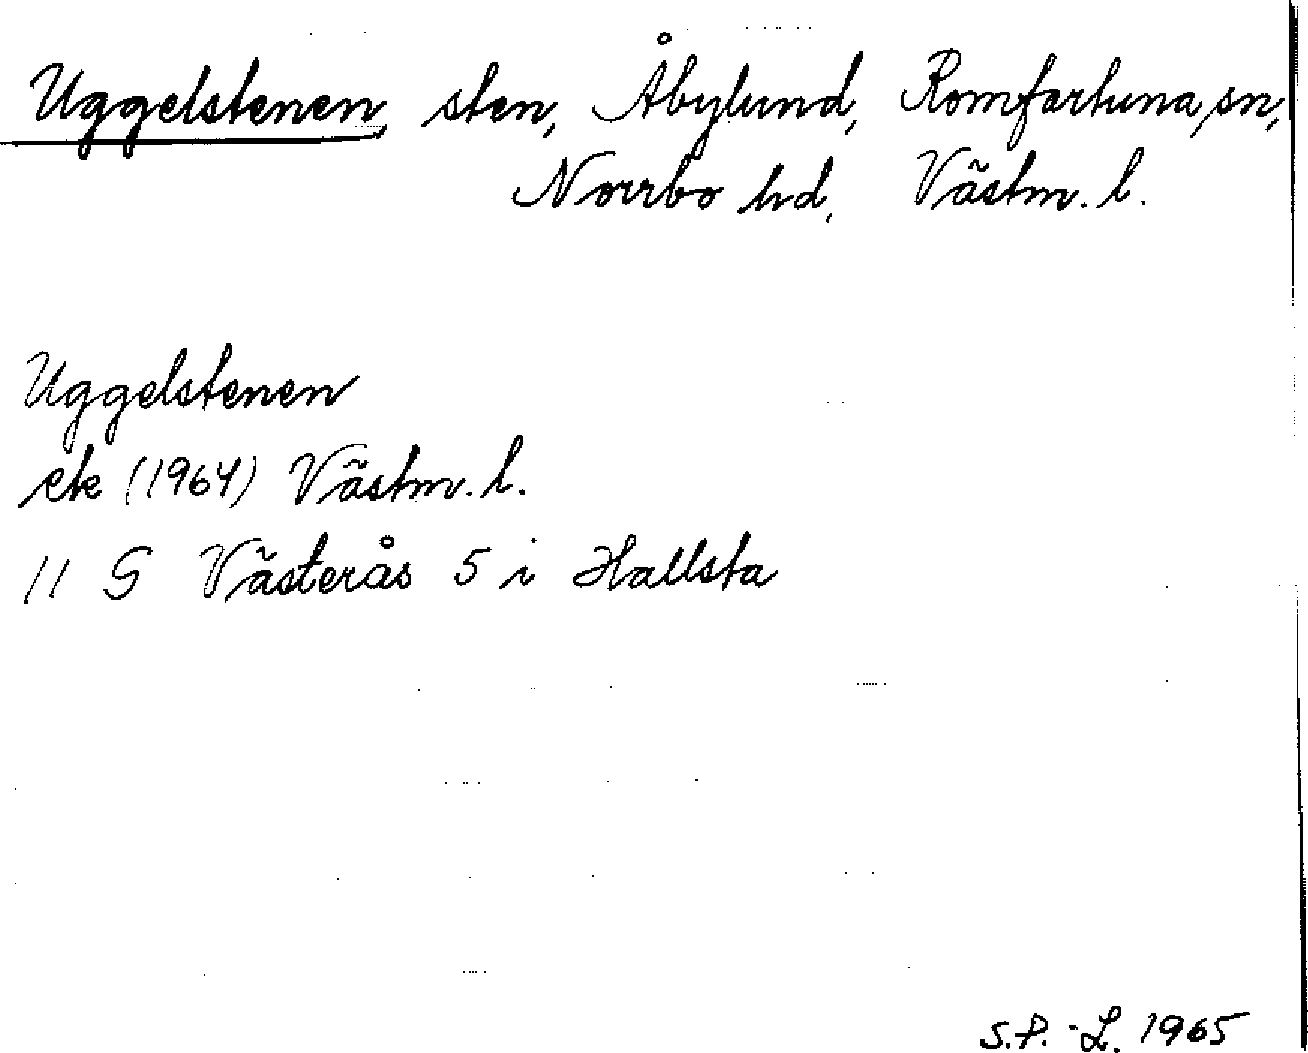 Uggelstenen, sten, Åbylund, Romfartuna sn,
Norrbo hd, Västm. l.
Uggelstenen
ek (1964) Västm. l.
11 G Västerås 5 i Hallsta
S.P.-L. 1965